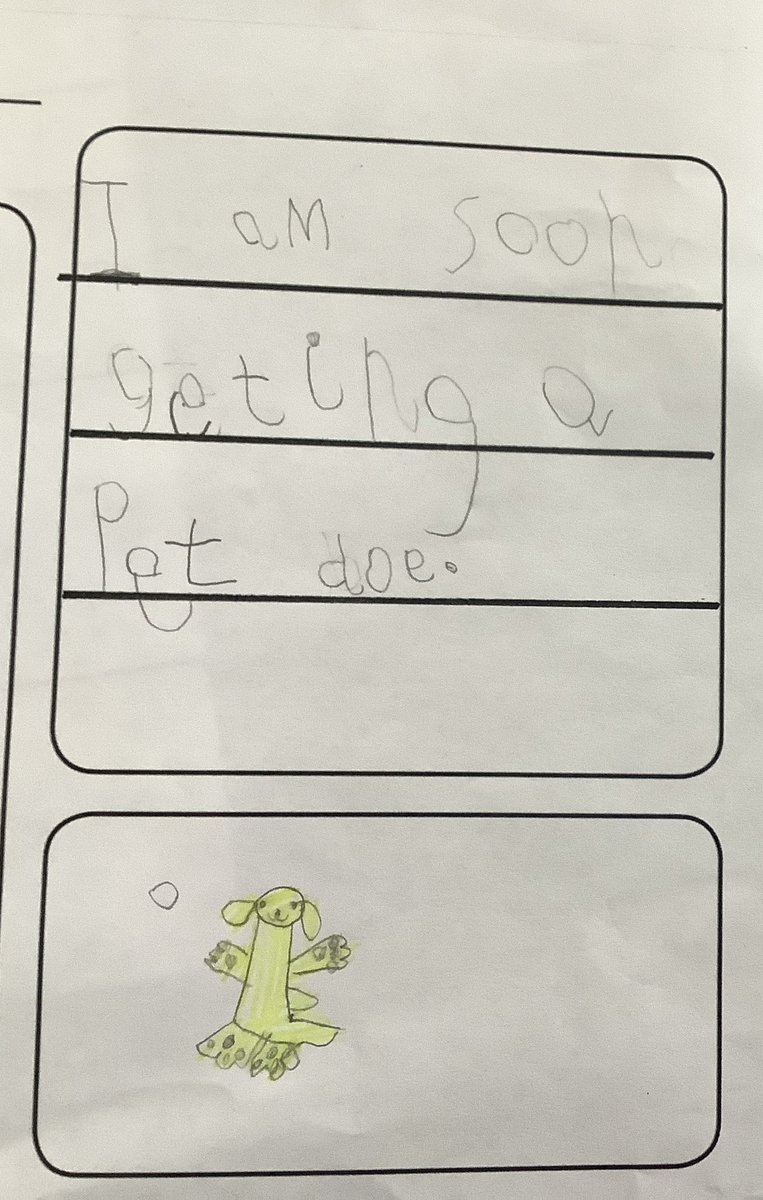 I am soon
geting a
Pet doe.